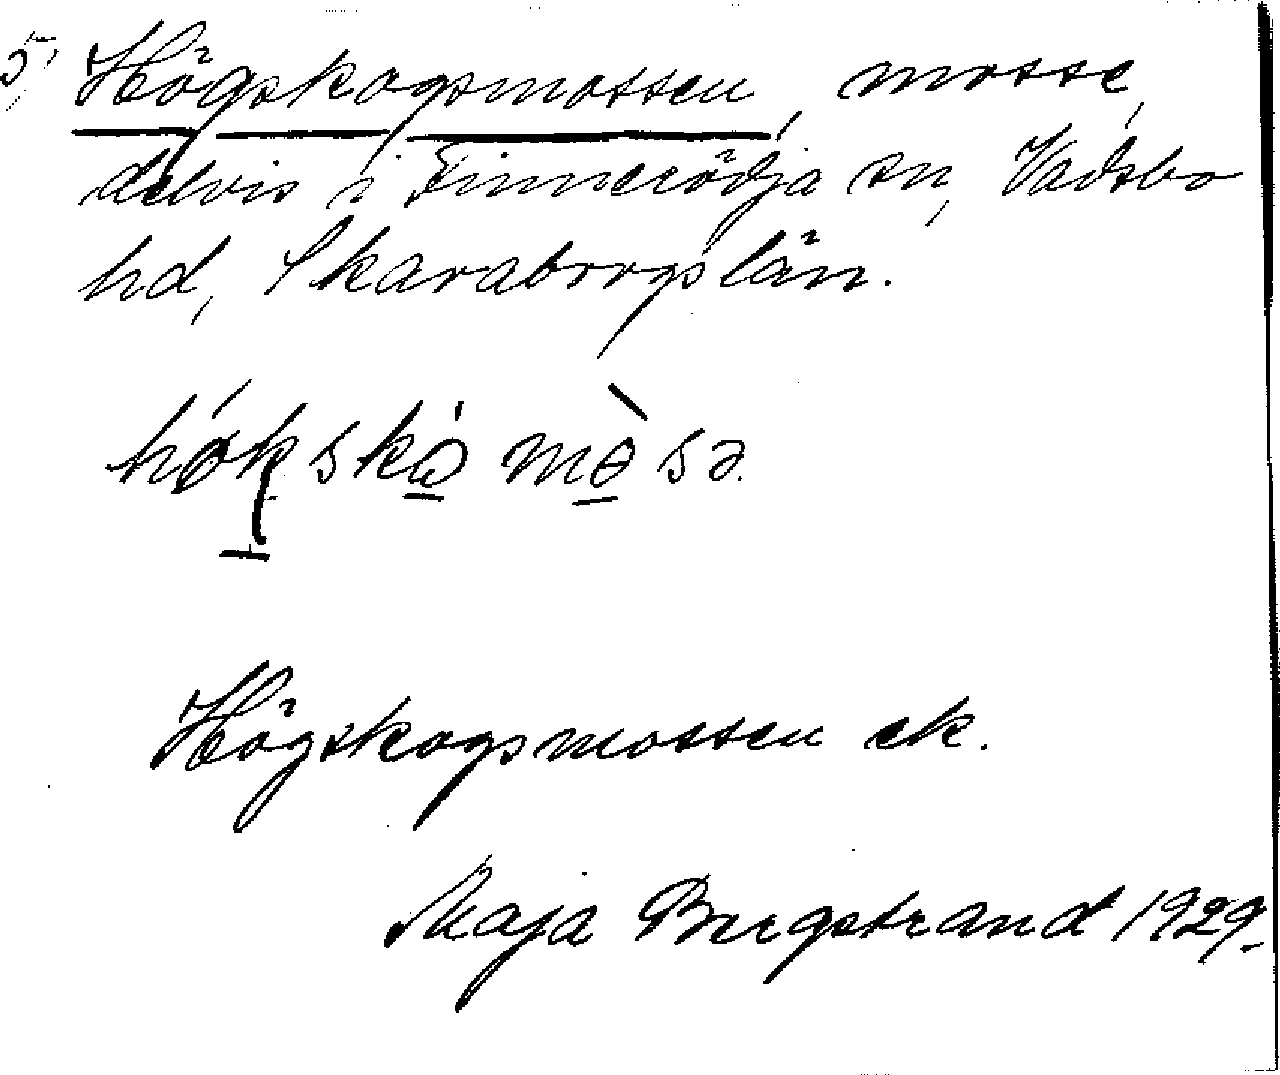 5, Högskogsmossen, mosse,
delvis i Finnerödja sn, Vadsbo
hd, Skaraborgs län.
Högskogsmossen ek.
Maja Bergstrand 1929.